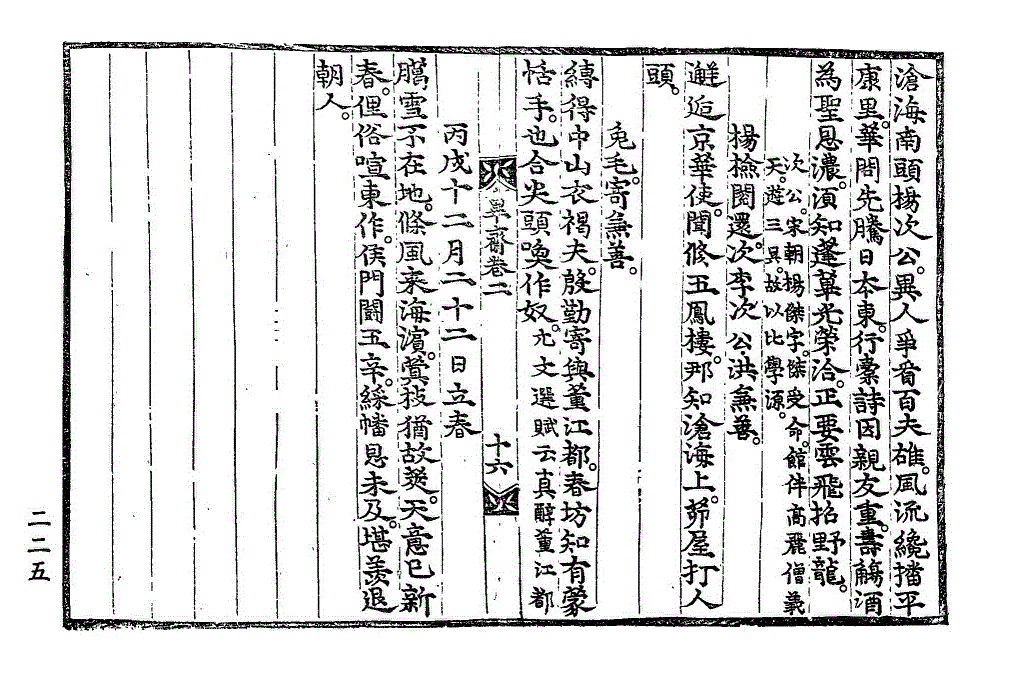 滄海南頭揚次公。異人爭看百夫雄。風流纔擅平
康里。華問先騰日本東。行橐詩因親友重。壽觴酒
為聖恩濃。須知蓬蓽光榮洽。正要雲飛招野龍。
次公。宋朝揚傑字。傑受命。館伴高麗僧義
天。遊三吳。故以比學源。
揚撿閱還。次李次公洪兼善。
邂逅京華使。聞修五鳳樓。那知滄海上。茆屋打人
頭。
兔毛。寄兼善。
縳得中山衣褐夫。殷勤寄與董江都。春坊知有蒙
恬手。也合尖頭喚作奴。尢文選賦云真醇董江都
齋卷二
十六
丙戌十二月二十二日立春
臈雪不在地。條風来海濱。蓂枝猶故莢。天意已新
春。俚俗喧東作。侯門鬪五辛。綵幡恩未及。堪羨退
朝人。
二二五